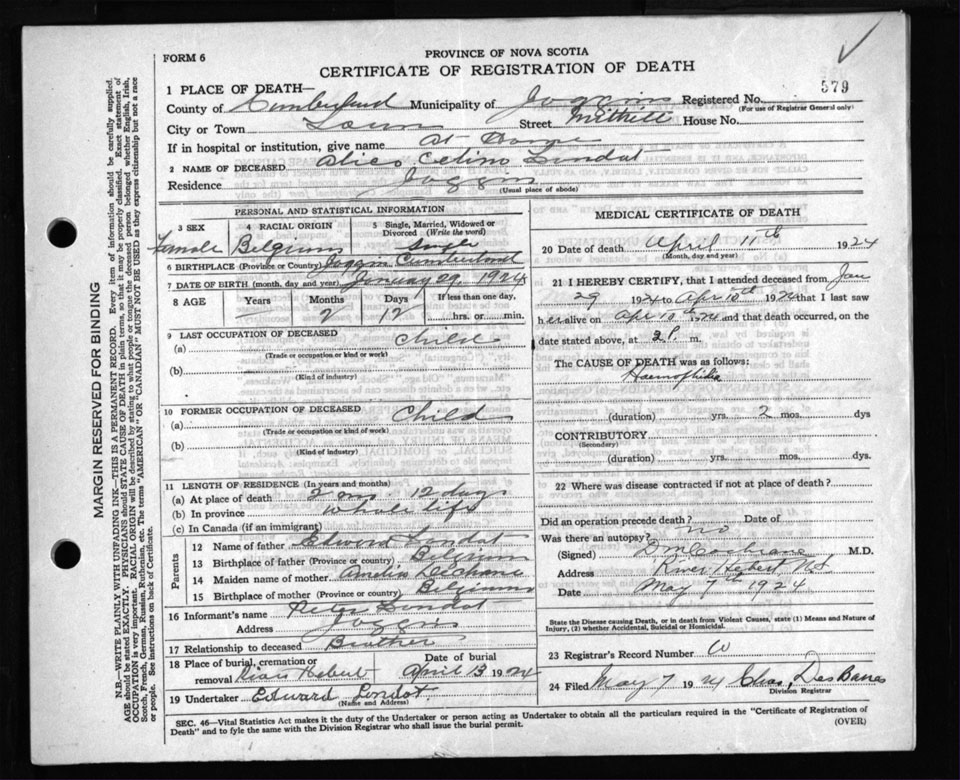 FORM 6
PROVINCE OF NOVA SCOTIA
CERTIFICATE OF REGISTRATION OF DEATH
579
1 PLACE OF DEATH—
County of Cumberland Municipality of Joggins Registered No.
(For use of Registrar General only)
City or Town Town Street Mitchell House No.
If in hospital or institution, give name At Home
2 NAME OF DECEASED Alice Celino Londat
Residence Joggins
(Usual place of abode)
PERSONAL AND STATISTICAL INFORMATION
3 SEX Female
4 RACIAL ORIGIN Belgium
5 Single, Married, Widowed or Divorced (Write the word) Single
6 BIRTHPLACE (Province or Country) Joggin Cumberland
7 DATE OF BIRTH (month, day and year) January 29, 1924
8 AGE Years Months Days If less than one day,
2 12 hrs. or min.
9 LAST OCCUPATION OF DECEASED
(a) Child
(Trade or occupation or kind or work)
(b)
(Kind of industry)
10 FORMER OCCUPATION OF DECEASED
(a) Child
(Trade or occupation or kind of work)
(b)
(Kind of industry)
11 LENGTH OF RESIDENCE (In years and months)
(a) At place of death 2 mo. 12 days
(b) In province whole life
(c) In Canada (if an immigrant)
Parents
12 Name of father Edward Londat
13 Birthplace of father (Province or country) Belgium
14 Maiden name of mother Amelia
15 Birthplace of mother (Province or country) Belgium
16 Informant's name Peter Londat
Address Joggins
17 Relationship to deceased Brother
18 Place of burial, cremation or removal River Hebert Date of burial April 13 1924
19 Undertaker Edward Londot
(Name and Address)
MEDICAL CERTIFICATE OF DEATH
20 Date of death April 11th 1924
(Month, day and year)
21 I HEREBY CERTIFY, that I attended deceased from Jan
29 1924 to Apr 10th 1924 that I last saw
her alive on Apr 10th 1924 and that death occurred, on
date stated above, at 3 P. m.
The CAUSE OF DEATH was as follows:
Haemophilia
(duration) yrs. 2 mos. dys
CONTRIBUTORY
(Secondary)
(duration) yrs. mos. dys.
22 Where was disease contracted if not at place of death?
Did an operation precede death? no Date of
Was there an autopsy?
(Signed) D M Cochrane M.D.
Address River Hebert NS
Date May 7th 1924
State the Disease causing Death, or in death from Violent Causes, state (1) Means and Nature of
Injury, (2) whether Accidental, Suicidal or Homicidal.
23 Registrar's Record Number
24 Filed May 7 1924 Chas. DesBarres
Division Registrar
SEC. 46—Vital Statistics Act makes it the duty of the Undertaker or person acting as Undertaker to obtain all the particulars required in the "Certificate of Registration of
Death" and to fyle the same with the Division Registrar who shall issue the burial permit.
(OVER)
MARGIN RESERVED FOR BINDING
N.B.—WRITE PLAINLY WITH UNFADING INK—THIS IS A PERMANENT RECORD. Every item of information should be carefully supplied.
AGE should be stated EXACTLY. PHYSICIANS should STATE CAUSE OF DEATH in plain terms, so that it may be properly classified. Exact statement of
OCCUPATION is very important. RACIAL ORIGIN will be described by stating to what people or tongue the deceased person belonged whether English, Irish,
Scotch, French, German, Russian, Ruthenian, etc. The terms "AMERICAN" OR "CANADIAN" MUST NOT BE USED as they express citizenship but not a race
or people. See instructions on back of Certificate.